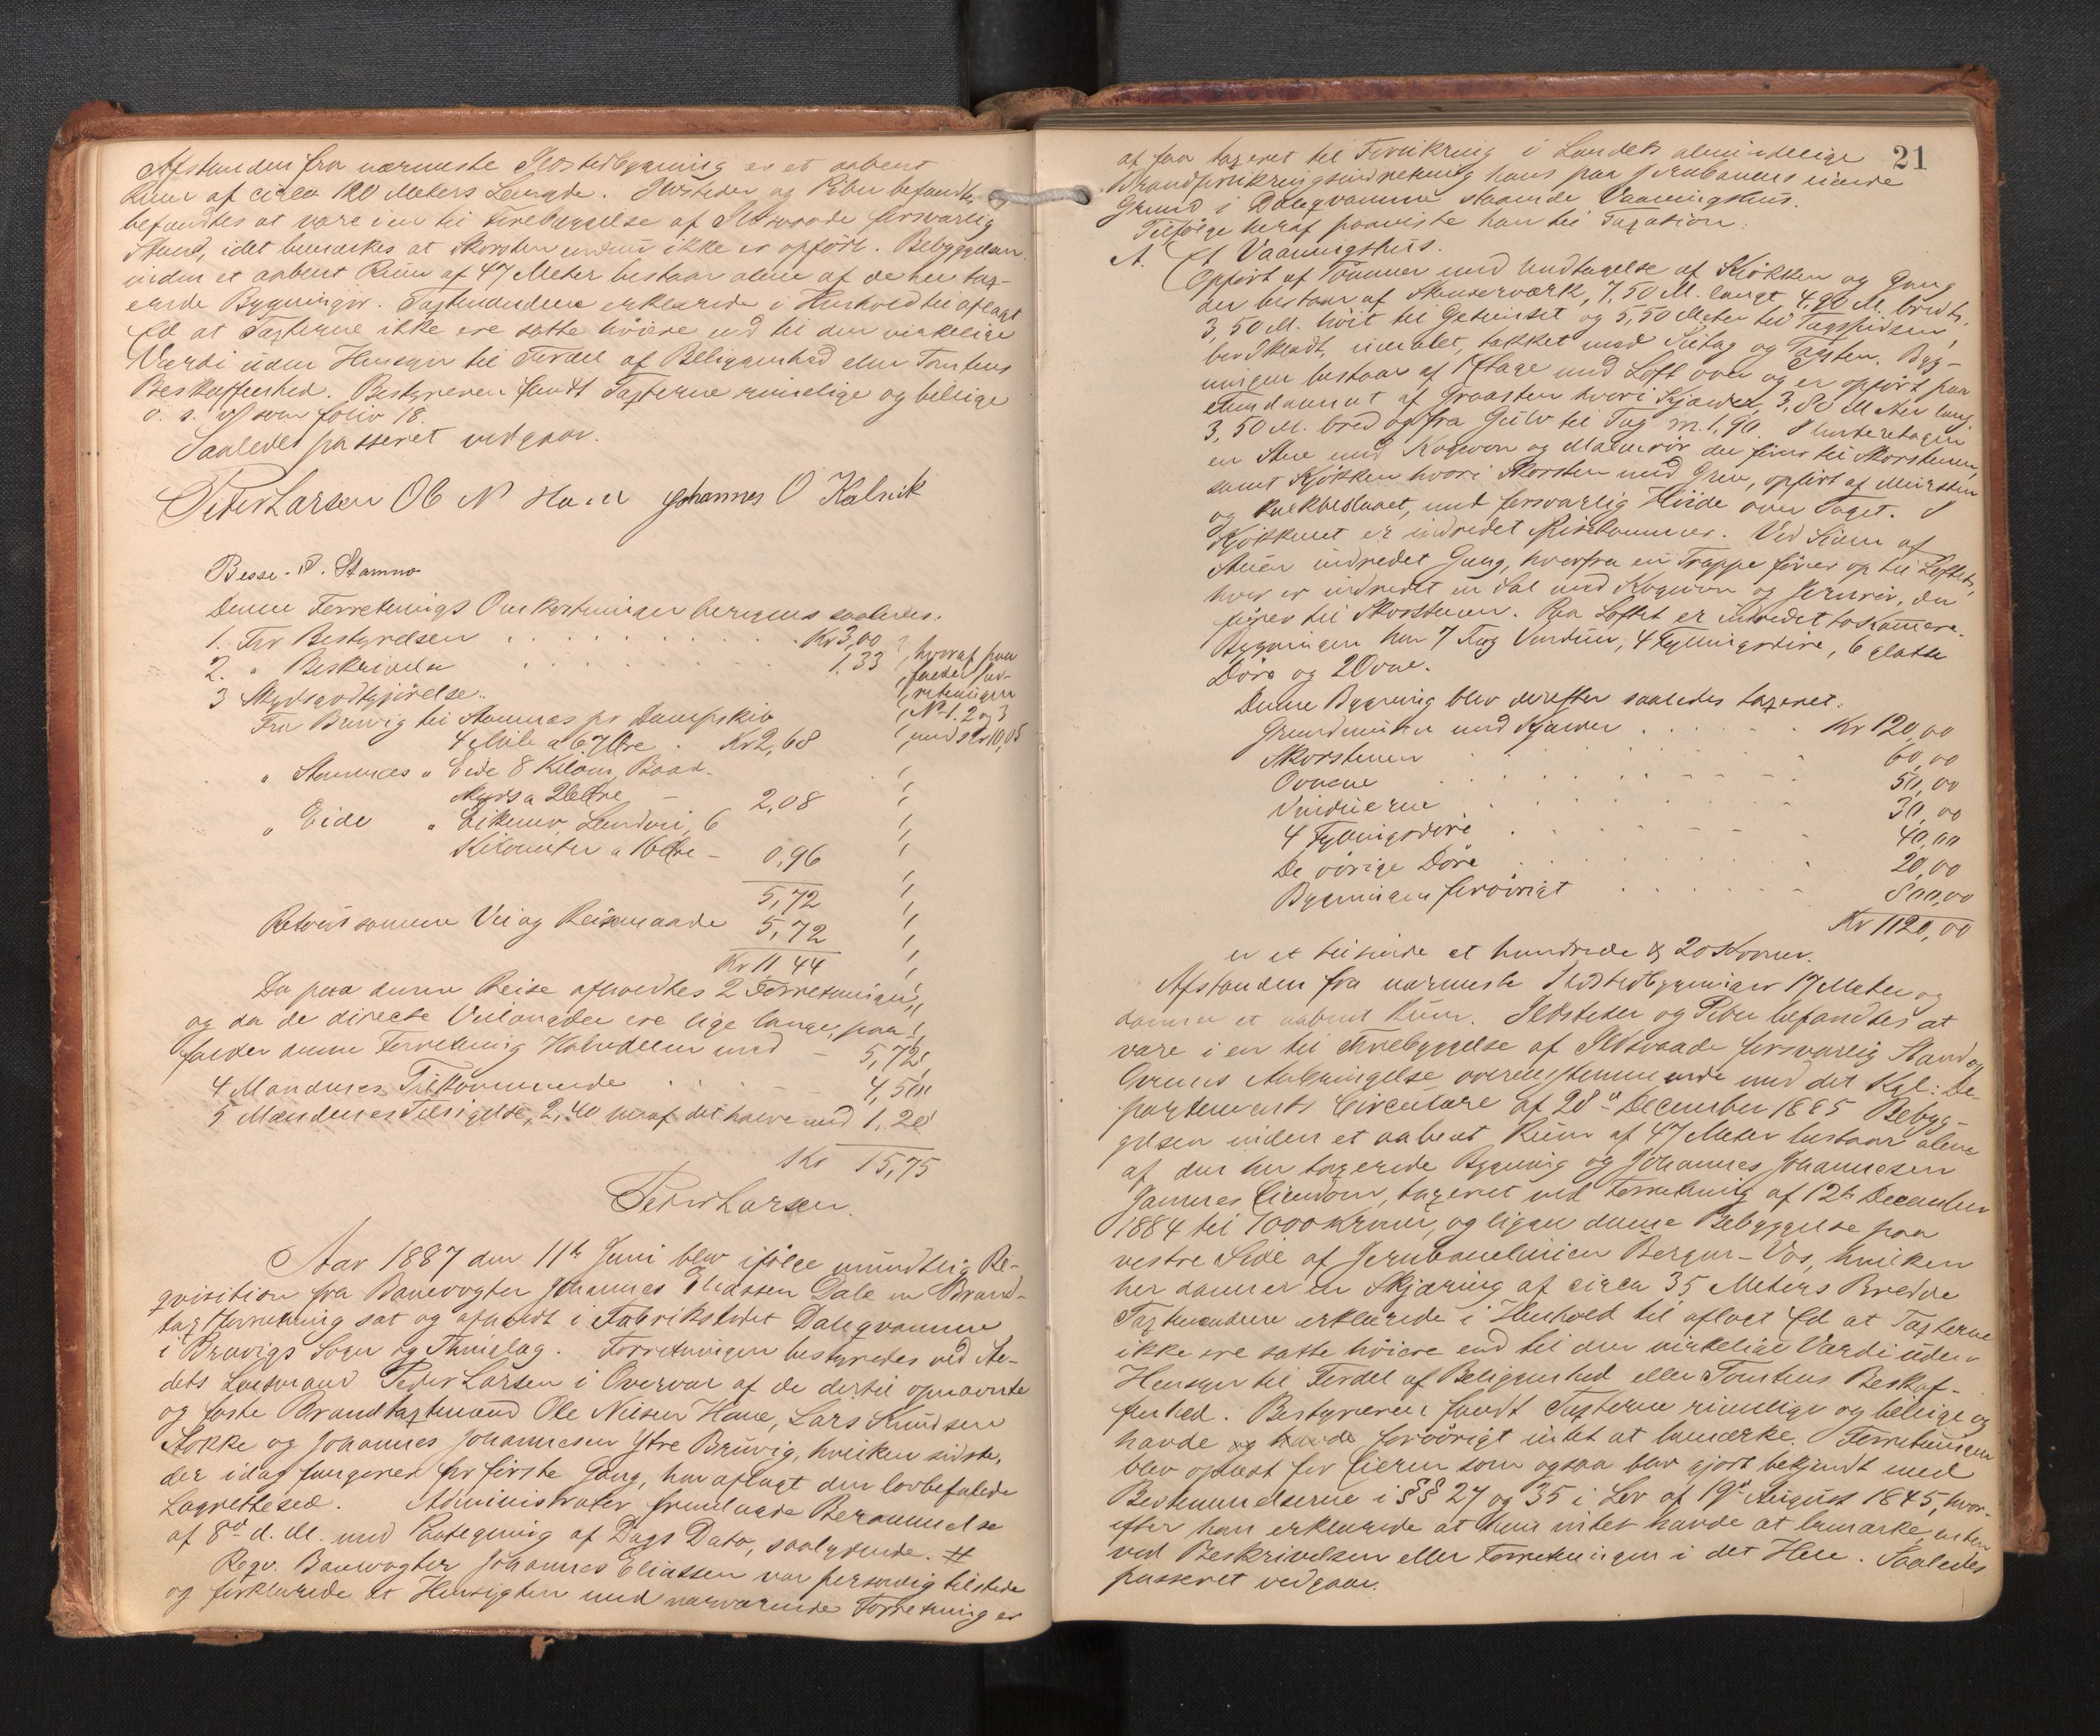 Afstanden fra nærmeste Ildstedbygning er et aabent
Rum af circa 120 Meters Længde. Ildsteder og Piber befandtes
befandtes at være i en til Forebyggelse af Ildsvaade forsvarlig
Stand, idet bemærkes at Skorsten endnu ikke er opført. Bebyggelsen
inden et aabent Rum af 47 Meter bestaar alene af de her tax-
erede Bygninger. Taxtmændene erklærede i Henhold til aflagt
Ed at Taxterne ikke ere satte høiere end til den virkelige
Værdi uden Hensyn til Fordel af Beliggenhed eller Tomtens
Beskaffenhed. Bestyreren fandt Taxterne rimelige og billige
o. s. v. som folio 18.
Saaledes passeret vedgaar.
Peder Larsen O N Johannes O Kalvik
Besse. P. Stamno
Denne Forretnings Omkostninger beregnes saaledes:
1. For Bestyrelsen Kr 3,00
2. " Beskrivelse 1,33
3 Skydsgodtgjørelse
hvoraf paa
falder for-
retningen
No 1. 2 og 3
med Kr 10,05
Fra Bruvig til Stamnes pr Dampskib
4 Mile a 67 Øre . Kr 2,68
" Stamnes " Eide 8 Kilom. Baad-
skyds a 26 Øre — 2,08
" Eide " Eikemo Landvei, 6
Kilometer a 16 Øre — 0,96
5,72
Retour samme Vei og Reisemaade 5,72
Kr 11 44
Da paa denne Reise afholdtes 2 Forretninger,
og da de directe Veilængder ere lige lange, paa-
falder denne Forretning Halvdelen med — 5,72
4 Mændenes Tilkommende 4,50
5 Mændenes Tilsigelse, 2,40 heraf det halve med 1,20
Kr 15,75
Peder Larsen.
Aar 1887 den 11te Juni blev ifølge mundtlig Re-
qvisition fra Banevogter Johannes Eliassen Dale en Brand-
taxtforretning sat og afholdt i Fabriksstedet Daleqvammen
i Bruvigs Sogn og Thinglag. Forretningen bestyredes ved Ste-
dets Lensmand Peder Larsen i Overvær af de dertil opnævnte
og faste Brandtaxtmænd Ole Nilsen Hane, Lars Knudsen
Stokke og Johannes Johannesen Ytre Bruvig, hvilken sidste,
der idag fungerer for første Gang, har aflagt den lovbefalede
Lagrettesed. Administrator fremlagde Berammelse
af 8de d. M. med Paategning af Dags Dato, saalydende. #
Reqv. Banevogter Johannes Eliassen var personlig tilstede
og forklarede at Hensigten med nærværende Forretning er
21
at faa taxeret til Forsikring i Landets almindelige
Brandforsikringsindretning hans paa Jernbanens eiende
Grund i Daleqvammen staaende Vaaningshus.
Tilfølge heraf paaviste han til Taxation:
A. Et Vaaningshus.
Opført af Tømmer med Undtagelse af Kjøkken og Gang
der bestaar af Stenderværk, 7,50 M. langt, 4,90 M. bredt,
3,50 M. høit til Gesimset og 5,50 Meter til Tagspidsen,
bordklædt, umalet, tækket med Sutag og Tagsten. Byg-
ningen bestaar af 1 Etage med Loft over og er opført paa
Fundament af Graasten hvori Kjælder 3,80 Meter lang
3,50 M. bred og fra Gulv til Tag m. 1,90. I underetagen
en Stue med Kogeovn og Malmrør der fører til Skorstenen,
samt Kjøkken hvori Skorsten med Grue, opført af Mursten
og kalkbeslaaet, med forsvarlig Høide over Taget. I
Kjøkkenet er indredet Spisekammer. Ved Siden af
Stuen indredet Gang, hvorfra en Trappe fører op til Loftet,
hvor er indredet en Sal med Kogeovn og Jernrør, der
fører til Skorstenen. Paa Loftet er indredet to Kamere.
Bygningen har 7 Fag Vinduer, 4 Fyldningsdøre, 6 glatte
Døre og 2 Ovne.
Denne Bygning blev derefter saaledes taxeret:
Grundmuren med Kjælder Kr 120,00
Skorstenen 60,00
Ovnene 50,00
Vinduerne 30,00
4 Fyldningsdøre 40,00
De øvrige Døre 20,00
Bygningen forøvrigt 800,00
Kr 1120,00
er et tusinde et hundrede & 20 Kroner.
Afstanden fra nærmeste Ildstedbygninger 17 Meter og
danner et aabent Rum. Ildsteder og Piber befandtes at
være i en til Forebyggelse af Ildsvaade forsvarlig Stand og
Ovnens Anbringelse overensstemmende med det Kgl: De-
partements Circulære af 28de December 1885. Bebyg-
gelsen inden et aabent Rum af 47 Meter bestaar alene
af den her taxerede Bygning og Johannes Johannesen
Jamnes Eiendom, taxeret ved Forretning af 12te December
1884 til 1000 Kroner, og ligger denne Bebyggelse paa
vestre Side af Jernbanelinien Bergen-Vos, hvilken
her danner en Skjæring af circa 35 Meters Bredde
Taxtmændene erklærede i Henhold til aflagt Ed at Taxterne
ikke ere satte høiere end til den virkelige Værdi uden
Hensyn til Fordel af Beliggenhed eller Tomtens Beskaf-
fenhed. Bestyreren fandt Taxterne rimelige og billige og
havde og havde forøvrigt intet at bemærke. Forretningen
blev oplæst for Eieren som ogsaa blev gjort bekjendt med
Bestemmelserne i §§ 27 og 35 i Lov af 19de August 1845, hvor-
efter han erklærede at han intet havde at bemærke enten
ved Beskrivelsen eller Forretningen i det Hele. Saaledes
passeret vedgaar.